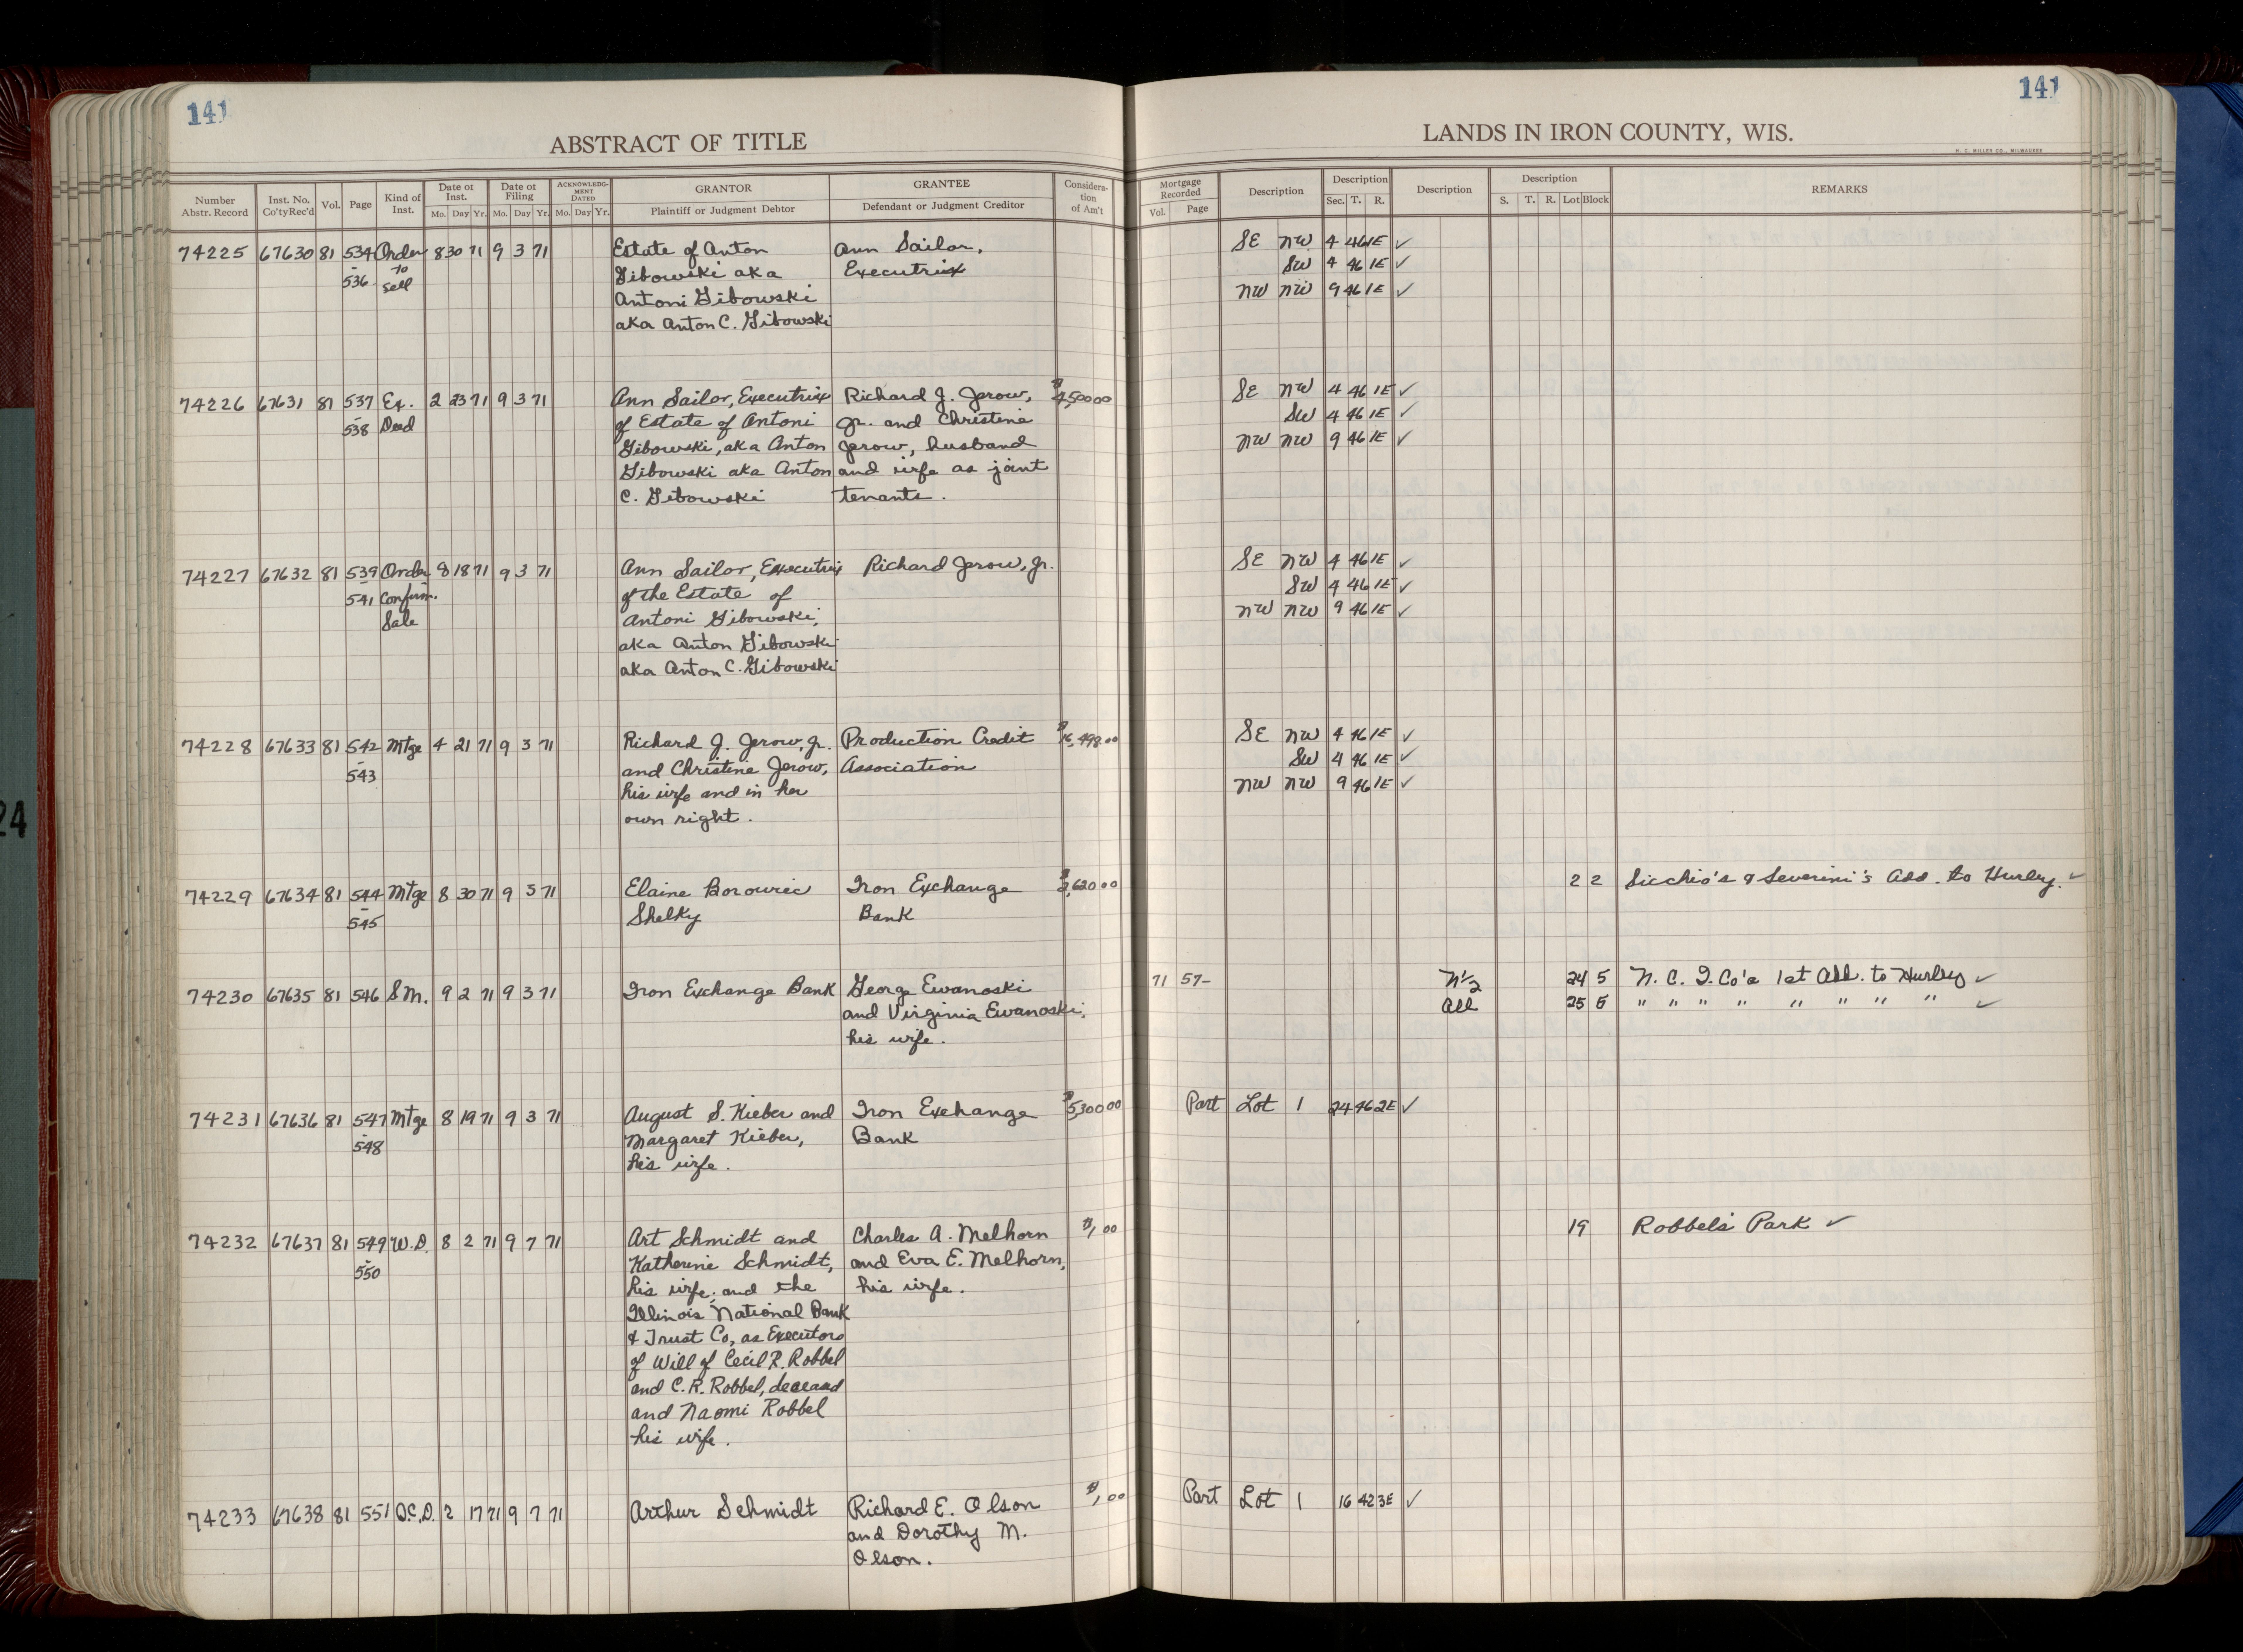 141
141
ABSTRACT OF TITLE
LANDS IN IRON COUNTY, WIS.
H. C. MILLER CO., MILWAUKEE
Number Abstr. Record Inst. No. Co'tyRec'd Vol. Page Kind of Inst. Date of Inst. Mo. Day Yr. Date of Filing Mo. Day Yr. ACKNOWLEDG-MENT DATED Mo. Day Yr. GRANTOR Plaintiff or Judgment Debtor GRANTEE Defendant or Judgment Creditor Considera-tion of Am't Mortgage Recorded Vol. Page Description Description Sec. T. R. Description Description S. T. R. Lot Block REMARKS
74225 67630 81 534 Order 8 30 71 9 3 71 Estate of Anton Ann Sailor, SE NW 4 46 1E ✓
- 536 to sell Gibowski aka Executrix SW 4 46 1E ✓
Antoni Gibowski NW NW 9 46 1E ✓
aka Anton C. Gibowski
74226 67631 81 537 Ex. 2 23 71 9 3 71 Ann Sailor, Executrix Richard J. Jerow, $4,500 00 SE NW 4 46 1E ✓
- 538 Deed of Estate of Antoni Jr. and Christine SW 4 46 1E ✓
Gibowski, aka Anton Jerow, husband NW NW 9 46 1E ✓
Gibowski aka Anton and wife as joint
C. Gibowski tenants.
74227 67632 81 539 Order 8 18 71 9 3 71 Ann Sailor, Executrix Richard Jerow, Jr. SE NW 4 46 1E ✓
- 541 Confirm. of the Estate of SW 4 46 1E ✓
Sale Antoni Gibowski, NW NW 9 46 1E ✓
aka Anton Gibowski
aka Anton C. Gibowski
74228 67633 81 542 Mtge 4 21 71 9 3 71 Richard J. Jerow, Jr. Production Credit $16,498.00 SE NW 4 46 1E ✓
- 543 and Christine Jerow, Association SW 4 46 1E ✓
his wife and in her NW NW 9 46 1E ✓
own right.
74229 67634 81 544 Mtge 8 30 71 9 3 71 Elaine Borowiec Iron Exchange 2 2 Sicchio's & Severini's Add. to Hurley. ✓
- 545 Shelky Bank
74230 67635 81 546 S.M. 9 2 71 9 3 71 Iron Exchange Bank George Ewanoski 71 57- N½ 24 5 N. C. I. Co's 1st Add. to Hurley ✓
and Virginia Ewanoski, All 25 5 " " " " " " " " ✓
his wife.
74231 67636 81 547 Mtge 8 19 71 9 3 71 August S. Kieber and Iron Exchange $5,300 00 Part Lot 1 24 46 2E ✓
- 548 Margaret Kieber, Bank
his wife.
74232 67637 81 549 W.D. 8 2 71 9 7 71 Art Schmidt and Charles A. Melhorn $1, 00 19 Robbel's Park ✓
- 550 Katherine Schmidt, and Eva E. Melhorn,
his wife; and the his wife.
Illinois National Bank
& Trust Co, as Executors
of Will of Cecil R. Robbel
and C. R. Robbel, deceased
and Naomi Robbel
his wife.
74233 67638 81 551 Q.C.D. 2 17 71 9 7 71 Arthur Schmidt Richard E. Olson $1, 00 Part Lot 1 16 42 3E ✓
and Dorothy M.
Olson.
24